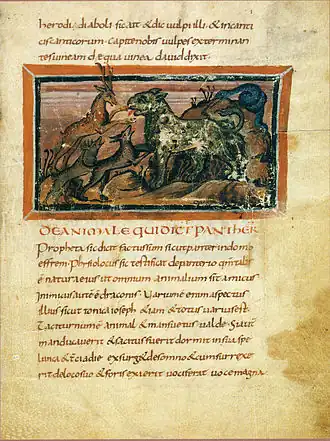 herodi; diaboli sicait & dic vulpi illi; & incanti
cis canticorum capite nobis vulpes exterminan
tes vineam d& qua vinea david dixit·
DE ANIMALE QUI DICT PANTHER
Propheta sic dicit factus sum sicut panter indomo
effrem· Physiologus sic testificat de pantero qm talis
ē natura eius ut omnium animalium sit amicus
Inimicus aut ē draconis Varium ē enim aspectus
illius sicut tonica ioseph & iam & totus varius est·
Taciturnum ē animal & mansuetus valde· Si aut
manducaverit & sacitus fuerit dormit in sua spe
lunca & tercia die exsurg& desomno & cum surrexe
rit de loco suo & foris exierit vociferat voce magna